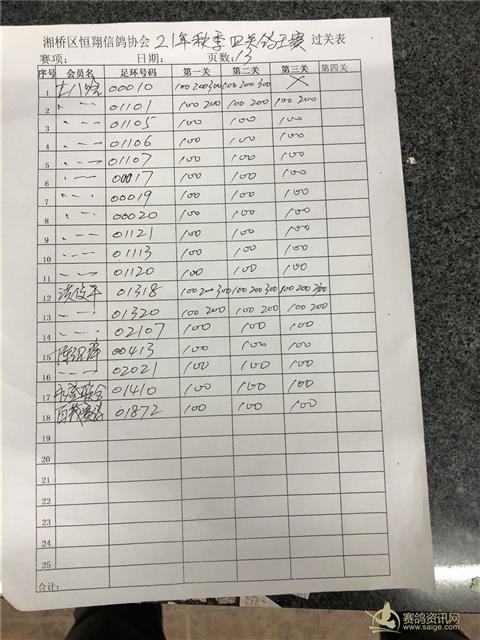 湘桥区恒翔信鸽协会 21年秋季四关鸽王赛 过关表
赛项： 日期： 页数：13
序号 会员名 足环号码 第一关 第二关 第三关 第四关
1 00010 100 200 300 100 200 300 ×
2 〃 — 01101 100 200 100 200 100 200
3 〃 — 01105 100 100 100
4 〃 — 01106 100 100 100
5 〃 — 01107 100 100 100
6 〃 — 00017 100 100 100
7 〃 — 00019 100 100 100
8 〃 — 00020 100 100 100
9 〃 — 01121 100 100 100
10 〃 — 01113 100 100 100
11 〃 — 01120 100 100 100
12 01318 100 200 300 100 200 300 100 200 300
13 〃 — 01320 100 200 100 200 100 200
14 〃 — 02107 100 100 100
15 00413 100 100 100
16 〃 — 02021 100 100 100
17 01410 100 100 100
18 01872 100 100 100
19
20
21
22
23
24
25
合计：
赛鸽资讯网
www.saige.com